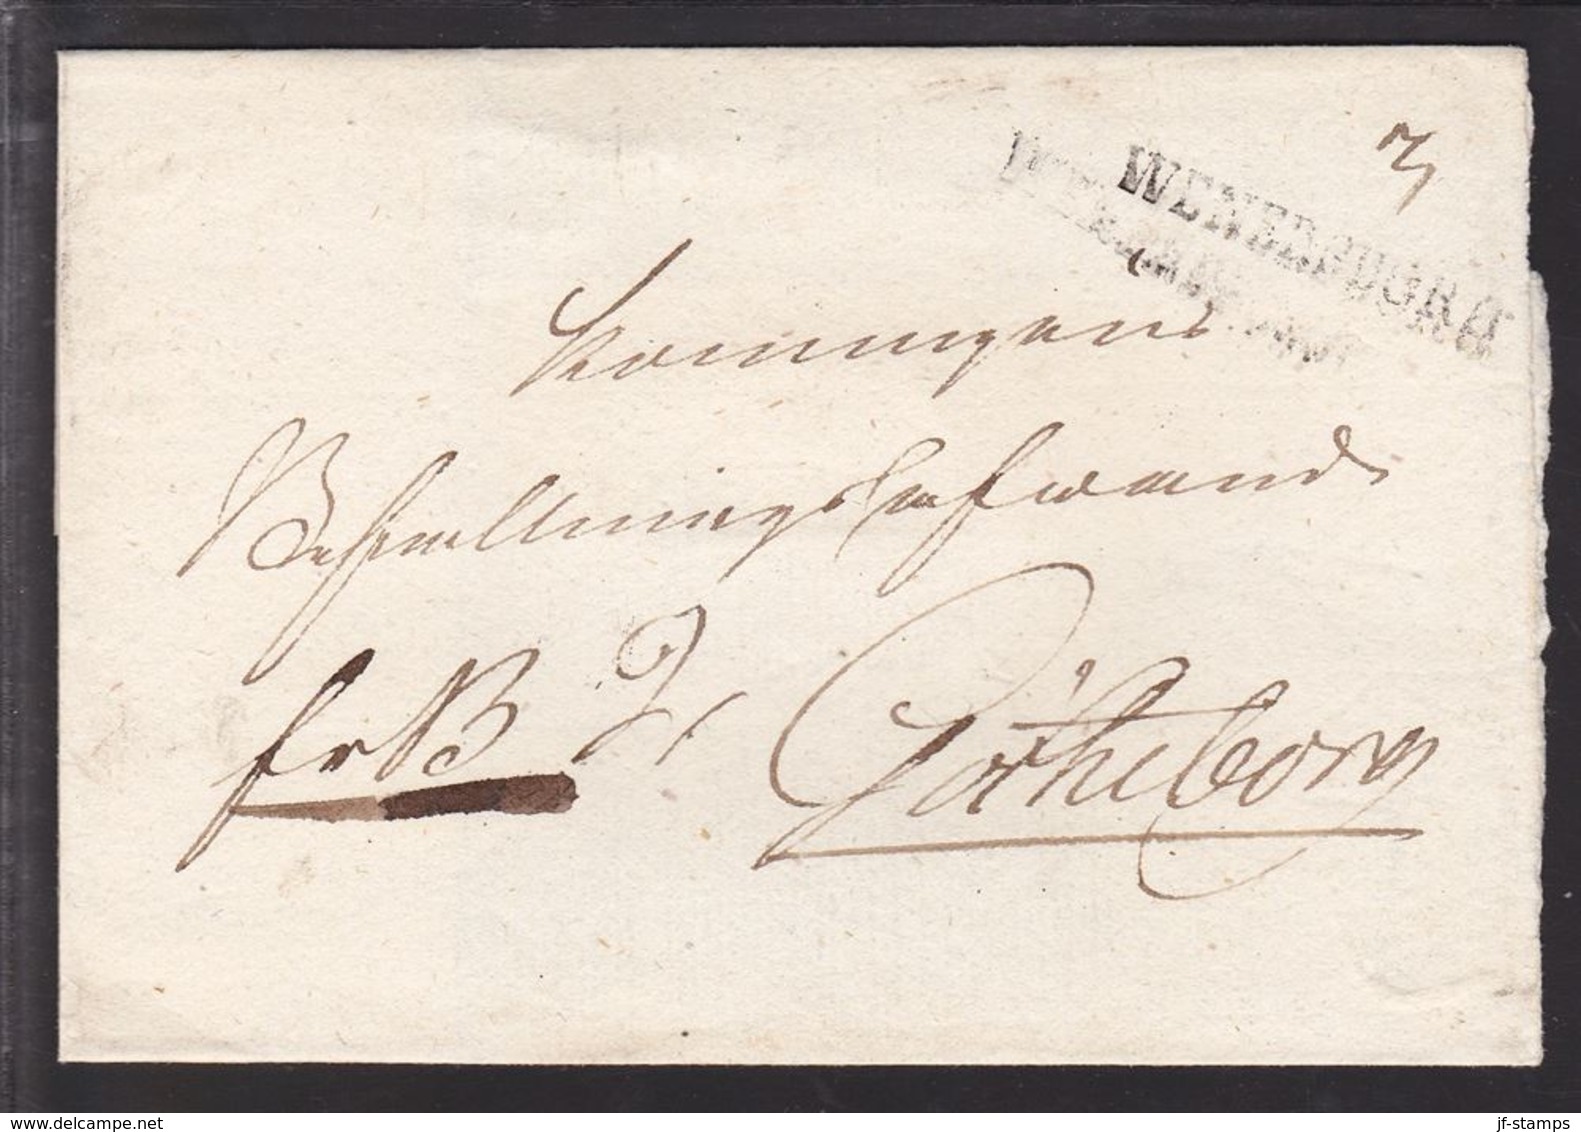 WENERSBORG
Konungens
Befallningshafwande
fr B
Götheborg
www.delcampe.net
jf-stamps